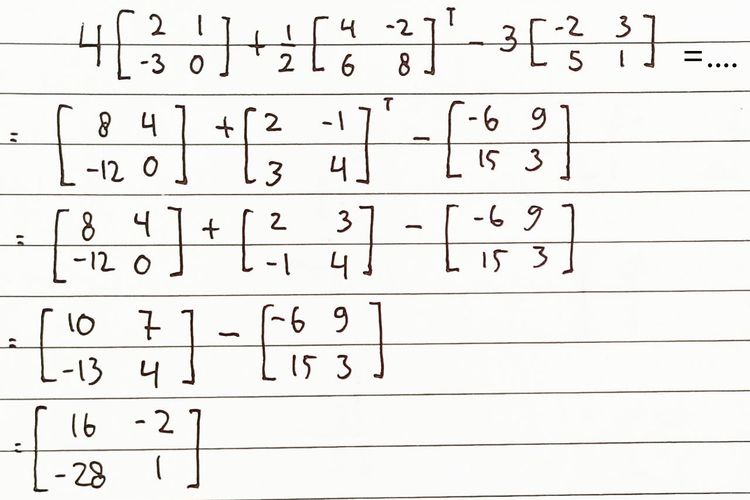 4 [2 1; -3 0] + 1/2 [4 -2; 6 8]^T - 3 [-2 3; 5 1] =....
= [8 4; -12 0] + [2 -1; 3 4]^T - [-6 9; 15 3]
= [8 4; -12 0] + [2 3; -1 4] - [-6 9; 15 3]
= [10 7; -13 4] - [-6 9; 15 3]
= [16 -2; -28 1]